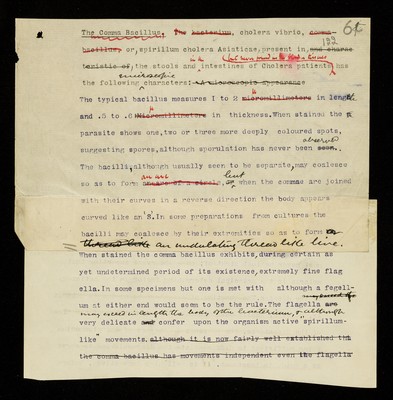 6
182
The Comma Bacillus, The bacterium, cholera vibrio, comma
bacillus, or, spirillum cholera Asiaticae, present in, and charac
teristic of, the stools and intestines of Cholera patients, has
in the (but never found in the blood or tissues
microscopic
the following characters: A microscopic appearance
The typical bacillus measures 1 to 2 micromillimeters in length.
and .5 to .6 micromillimeters in thickness. When stained the
parasite shows one, two or three more deeply coloured spots,
suggesting spores, although sporulation has never been seen.
observed
The bacilli, although usually seen to be separate, may coalesce
an arc bent
so as to form or, when the commas are joined
with their curves in a reverse direction the body appears
curved like an S. In some preparations from cultures the
bacilli may coalesce by their extremities so as to form
thread like an undulating thread like line.
When stained the comma bacillus exhibits, during certain as
yet undetermined period of its existence, extremely fine flag
ella. In some specimens but one is met with although a fegell-
um at either end would seem to be the rule. The flagella are
may exceed in length the body of the bacterium, & although
very delicate and confer upon the organism active "spirillum-
like" movements. although it is now fairly well established tha
the comma bacillus has movements independent even the flagella